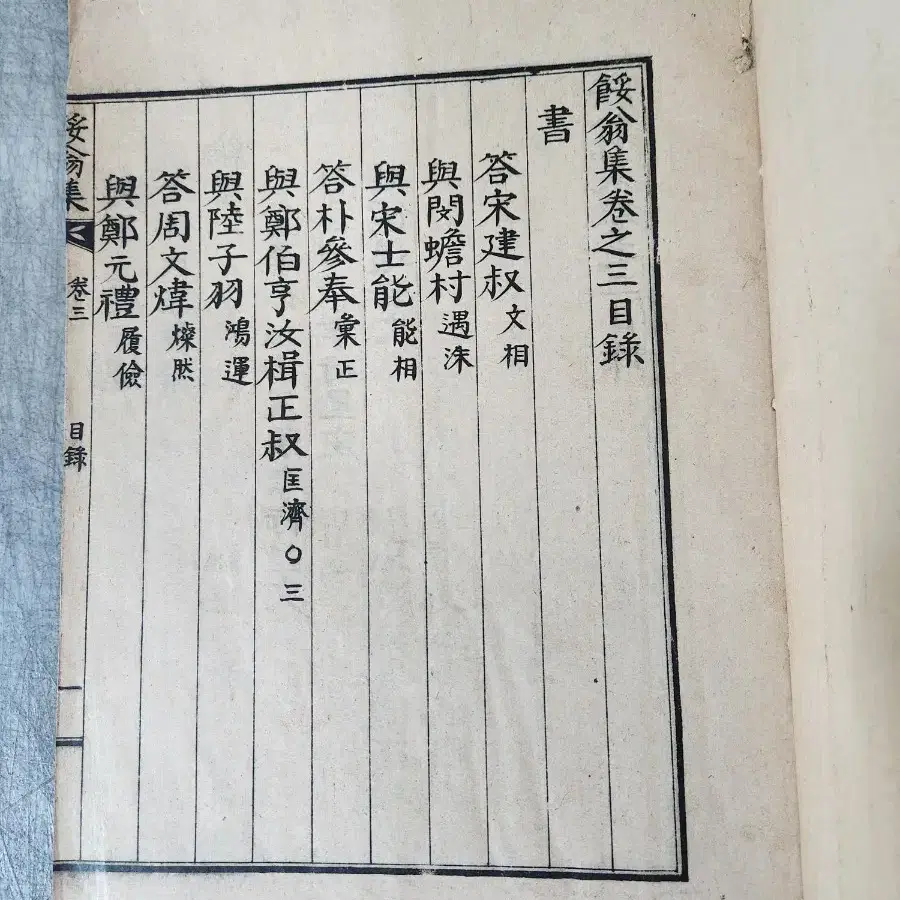 餒翁集卷之三目錄
書
答宋建叔 文相
與閔蟾村 遇洙
與宋士能 能相
答朴參奉 彙正
與鄭伯亨汝楫正叔 匡濟○三
與陸子羽 鴻運
答周文煒 燦然
與鄭元禮 履儉
餒翁集 卷三 目錄 一